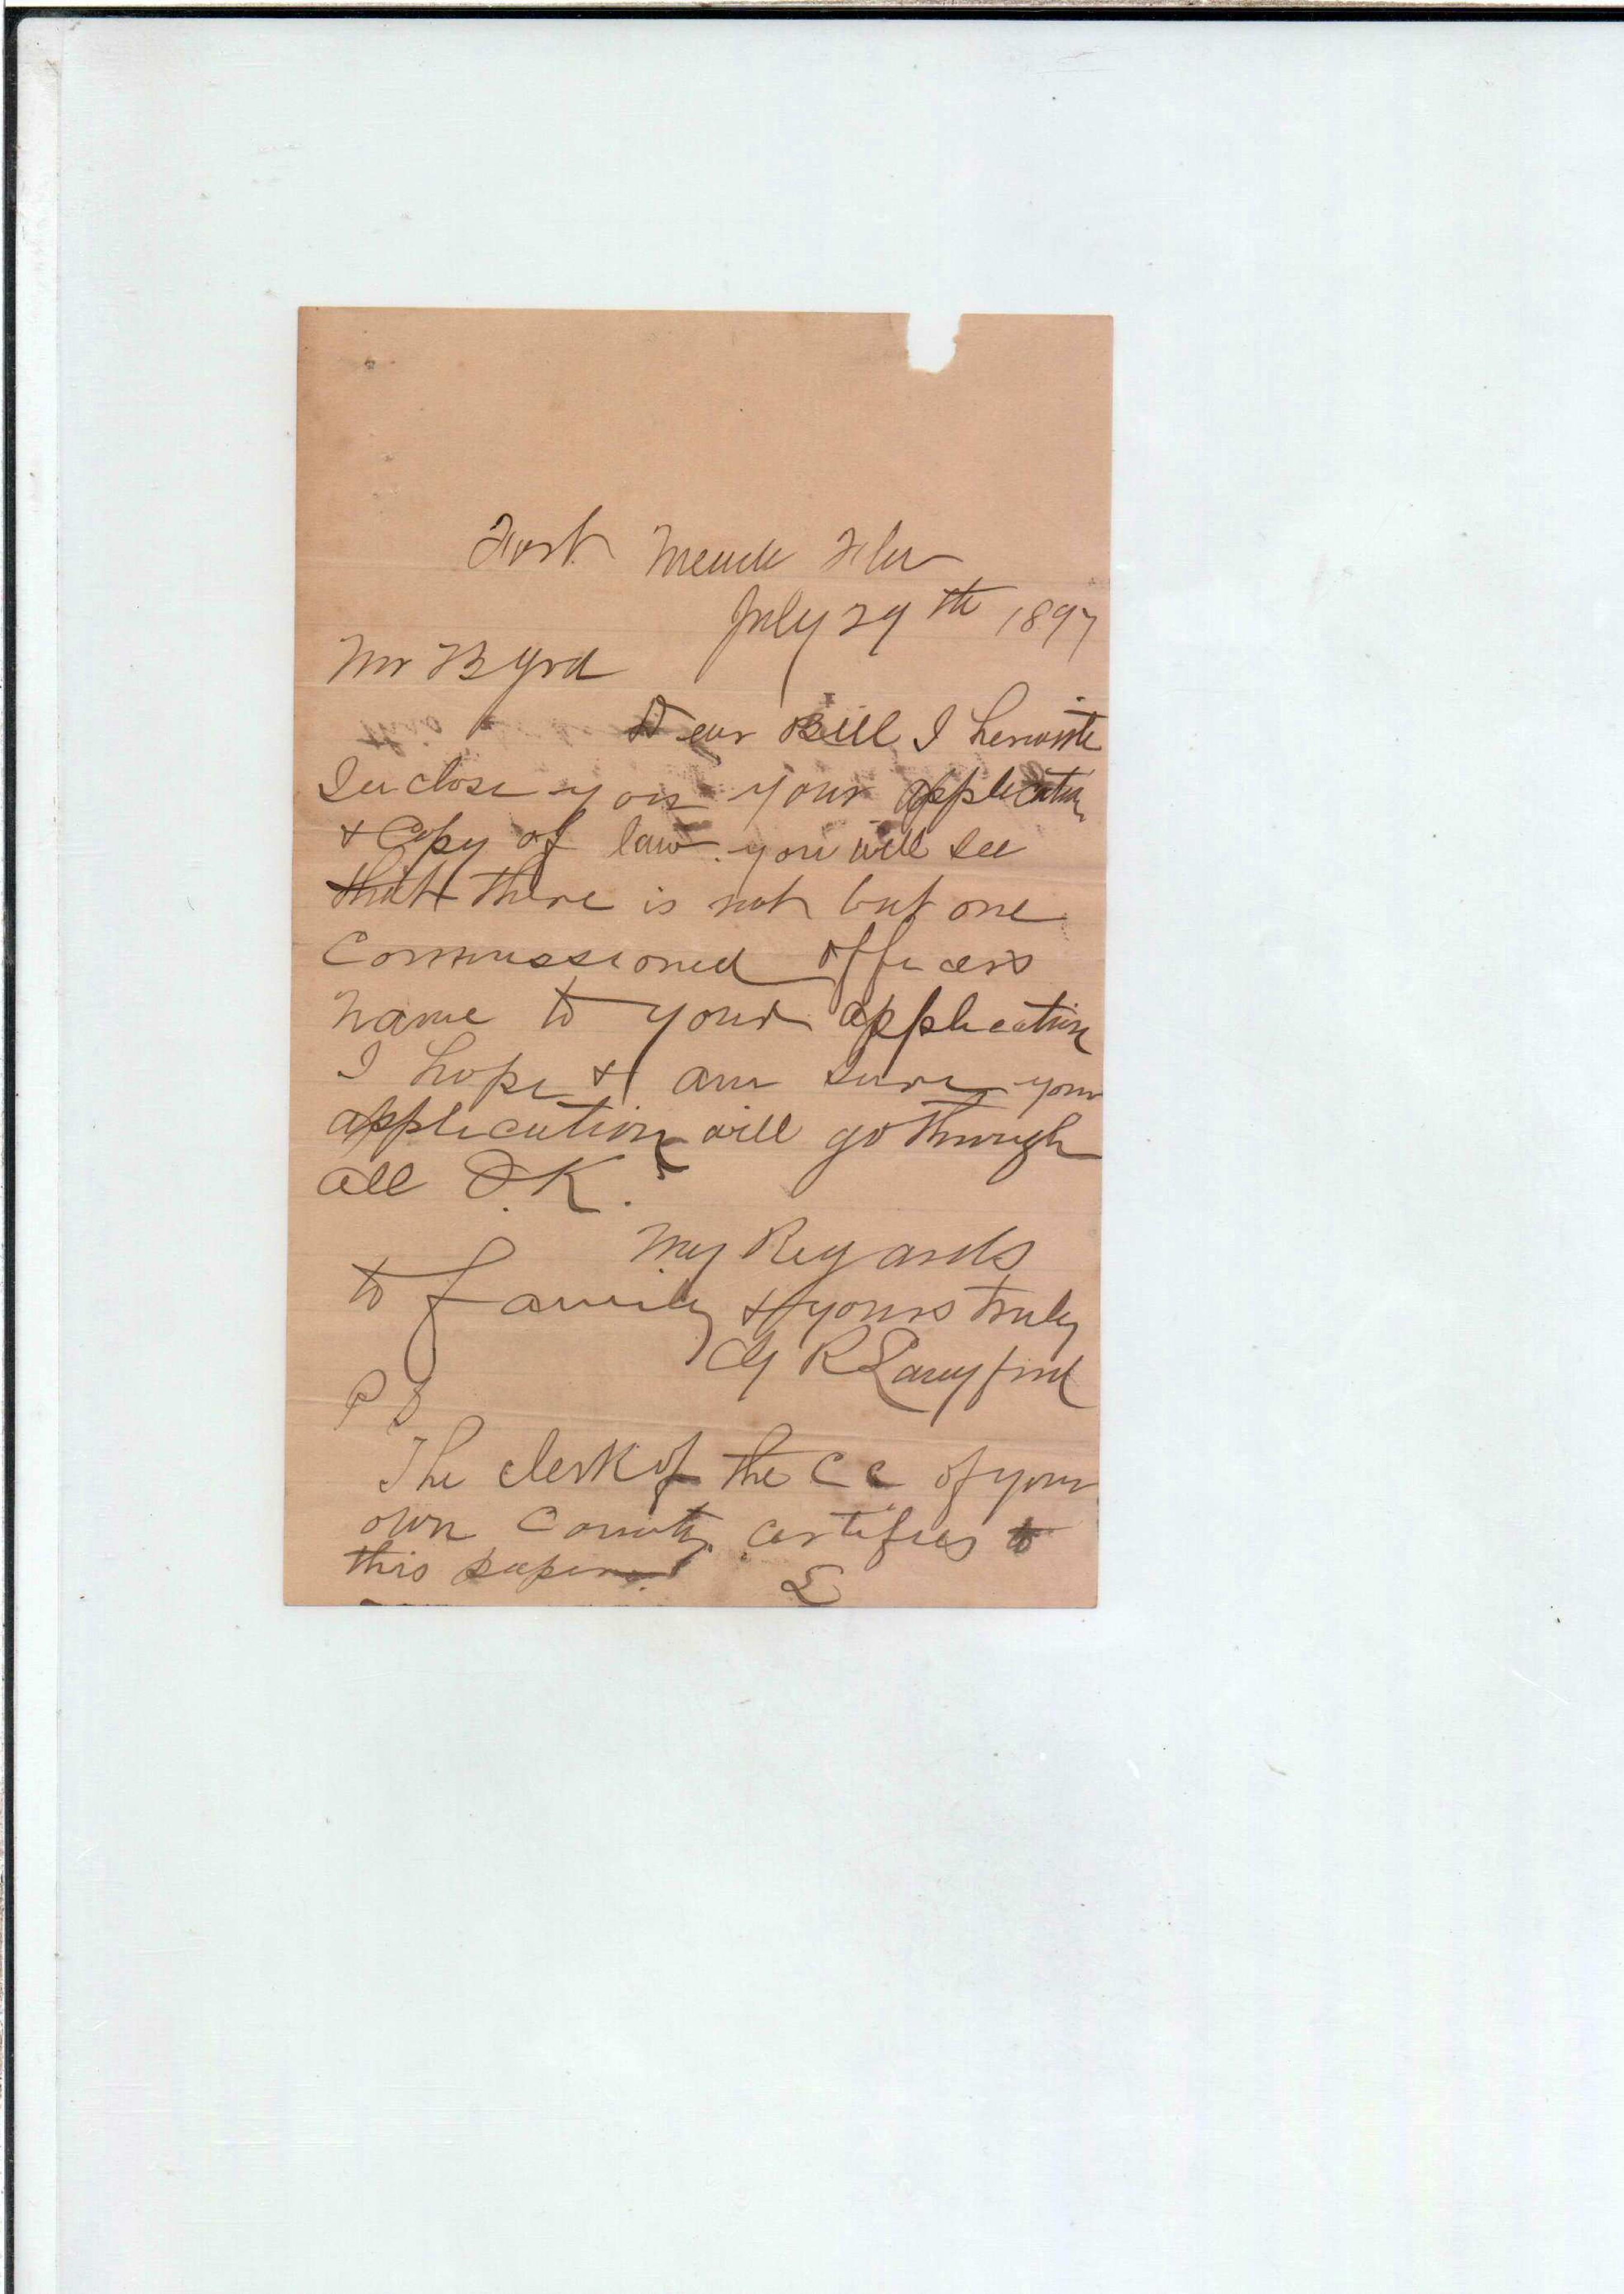 Fort Meade Fla
July 29th 1897
Mr Byrd
Dear Bill I herewith
Inclose you your application
& Copy of law. you will see
that there is not but one
Commissioned officers
name to your application
I hope & am sure your
application will go through
all O.K.
My Regards
to family & yours truly
R Langford
P S
The clerk of the C C of your
own County certifies to
this paper.
L